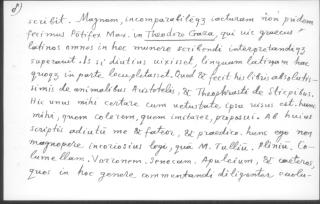 8)
scribit. Magnam, incomparabilēqȝ iacturam nōn pridem
fecimus Pōtifex Max. in Theodoro Gaza, qui vir graecus
latinos omnes in hoc munere scribendi interpretandiqȝ
superavit. Is si diutius vixisset, linguam latinam hac
quoqȝ in parte locupletasset. Quod & fecit his libris absolutis-
simis de animalibus Aristotelis, & Theophrasti de Stirpibus.
Hic unus mihi certare cum vetustate ipsa visus est. hunc
mihi, quem colerem, quem imitarer, proposui. Ab huius
scriptis adiutū me & fateor, & praedico. hunc ego non
magnopere incuriosius legi, quā M. Tulliū, Pliniū, Co-
lumellam, Varronem, Senecam, Apuleium, & caeteros,
quos in hoc genere commentandi diligenter evolu-